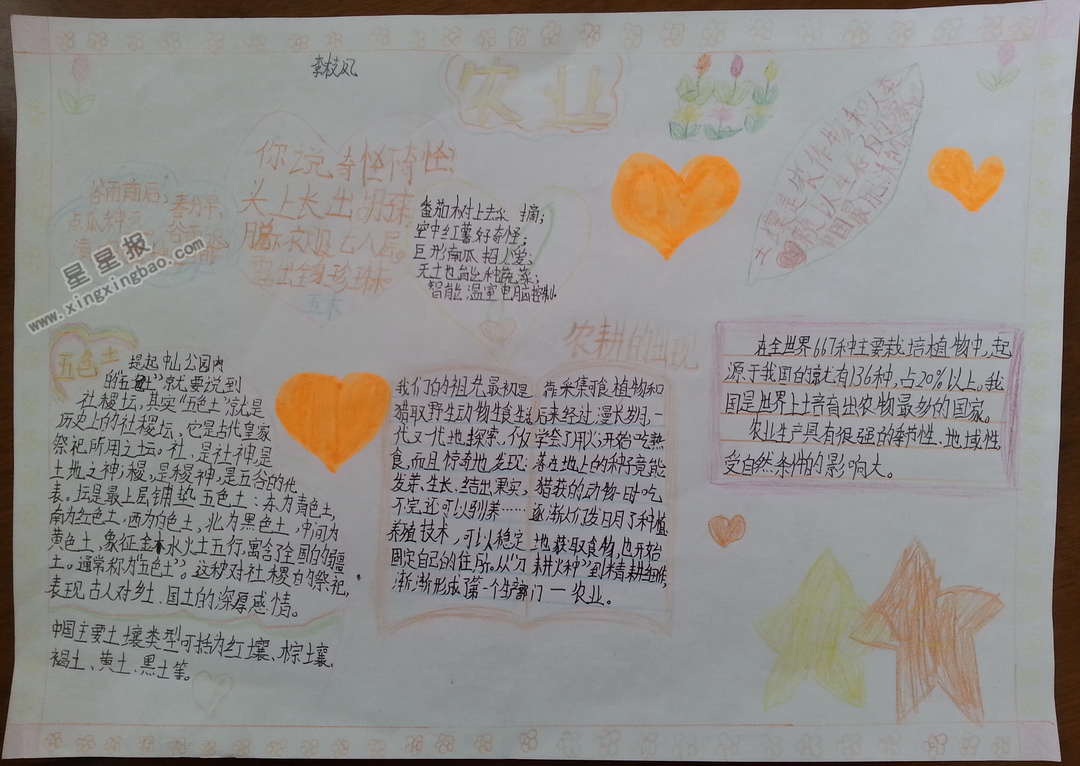 李枝风
农业
谷雨前后,
点瓜种豆
春分早,
谷雨迟,
你说奇怪不奇怪!
头上长出胡
玉米
番茄树上去采摘;
空中红薯好奇怪;
巨形南瓜招人爱;
无土也能种蔬菜;
智能温室电脑控制。
土壤是农作物和人类
赖以生存的
星星报
www.xingxingbao.com
五色土
提起中山公园内
的“五色土”就要说到
社稷坛,其实“五色土”就是
历史上的社稷坛,它是古代皇家
祭祀所用之坛。社、是社神是
土地之神;稷,是稷神,是五谷的代
表。坛是最上层铺垫五色土:东为青色土,
南为红色土,西为白色土,北为黑色土,中间为
黄色土,象征金木水火土五行,寓含了全国的疆
土。通常称为“五色土”。这种对社稷的祭祀,
表现古人对乡土、国土的深厚感情。
中国主要土壤类型可括为红壤、棕壤、
褐土、黄土、黑土等。
农耕的出现
我们的祖先最初是靠采集食植物和
猎取野生动物生食生活后来经过漫长岁月,一
代又一代地探索,不仅学会了用火,开始吃熟
食,而且惊奇地发现:落在地上的种子竟能
发芽、生长、结出果实,猎获的动物一时吃
不完还可以驯养……逐渐人们发明了种植
养殖技术,可以稳定地获取食物,也开始
固定自己的住所。从“刀耕火种”到精耕细作,
渐渐形成了第一个生产部门一农业。
在全世界667种主要栽培植物中,起
源于我国的就有136种,占20%以上。我
国是世界上培育出农物最多的国家。
农业生产具有很强的季节性、地域性,
受自然条件的影响大。